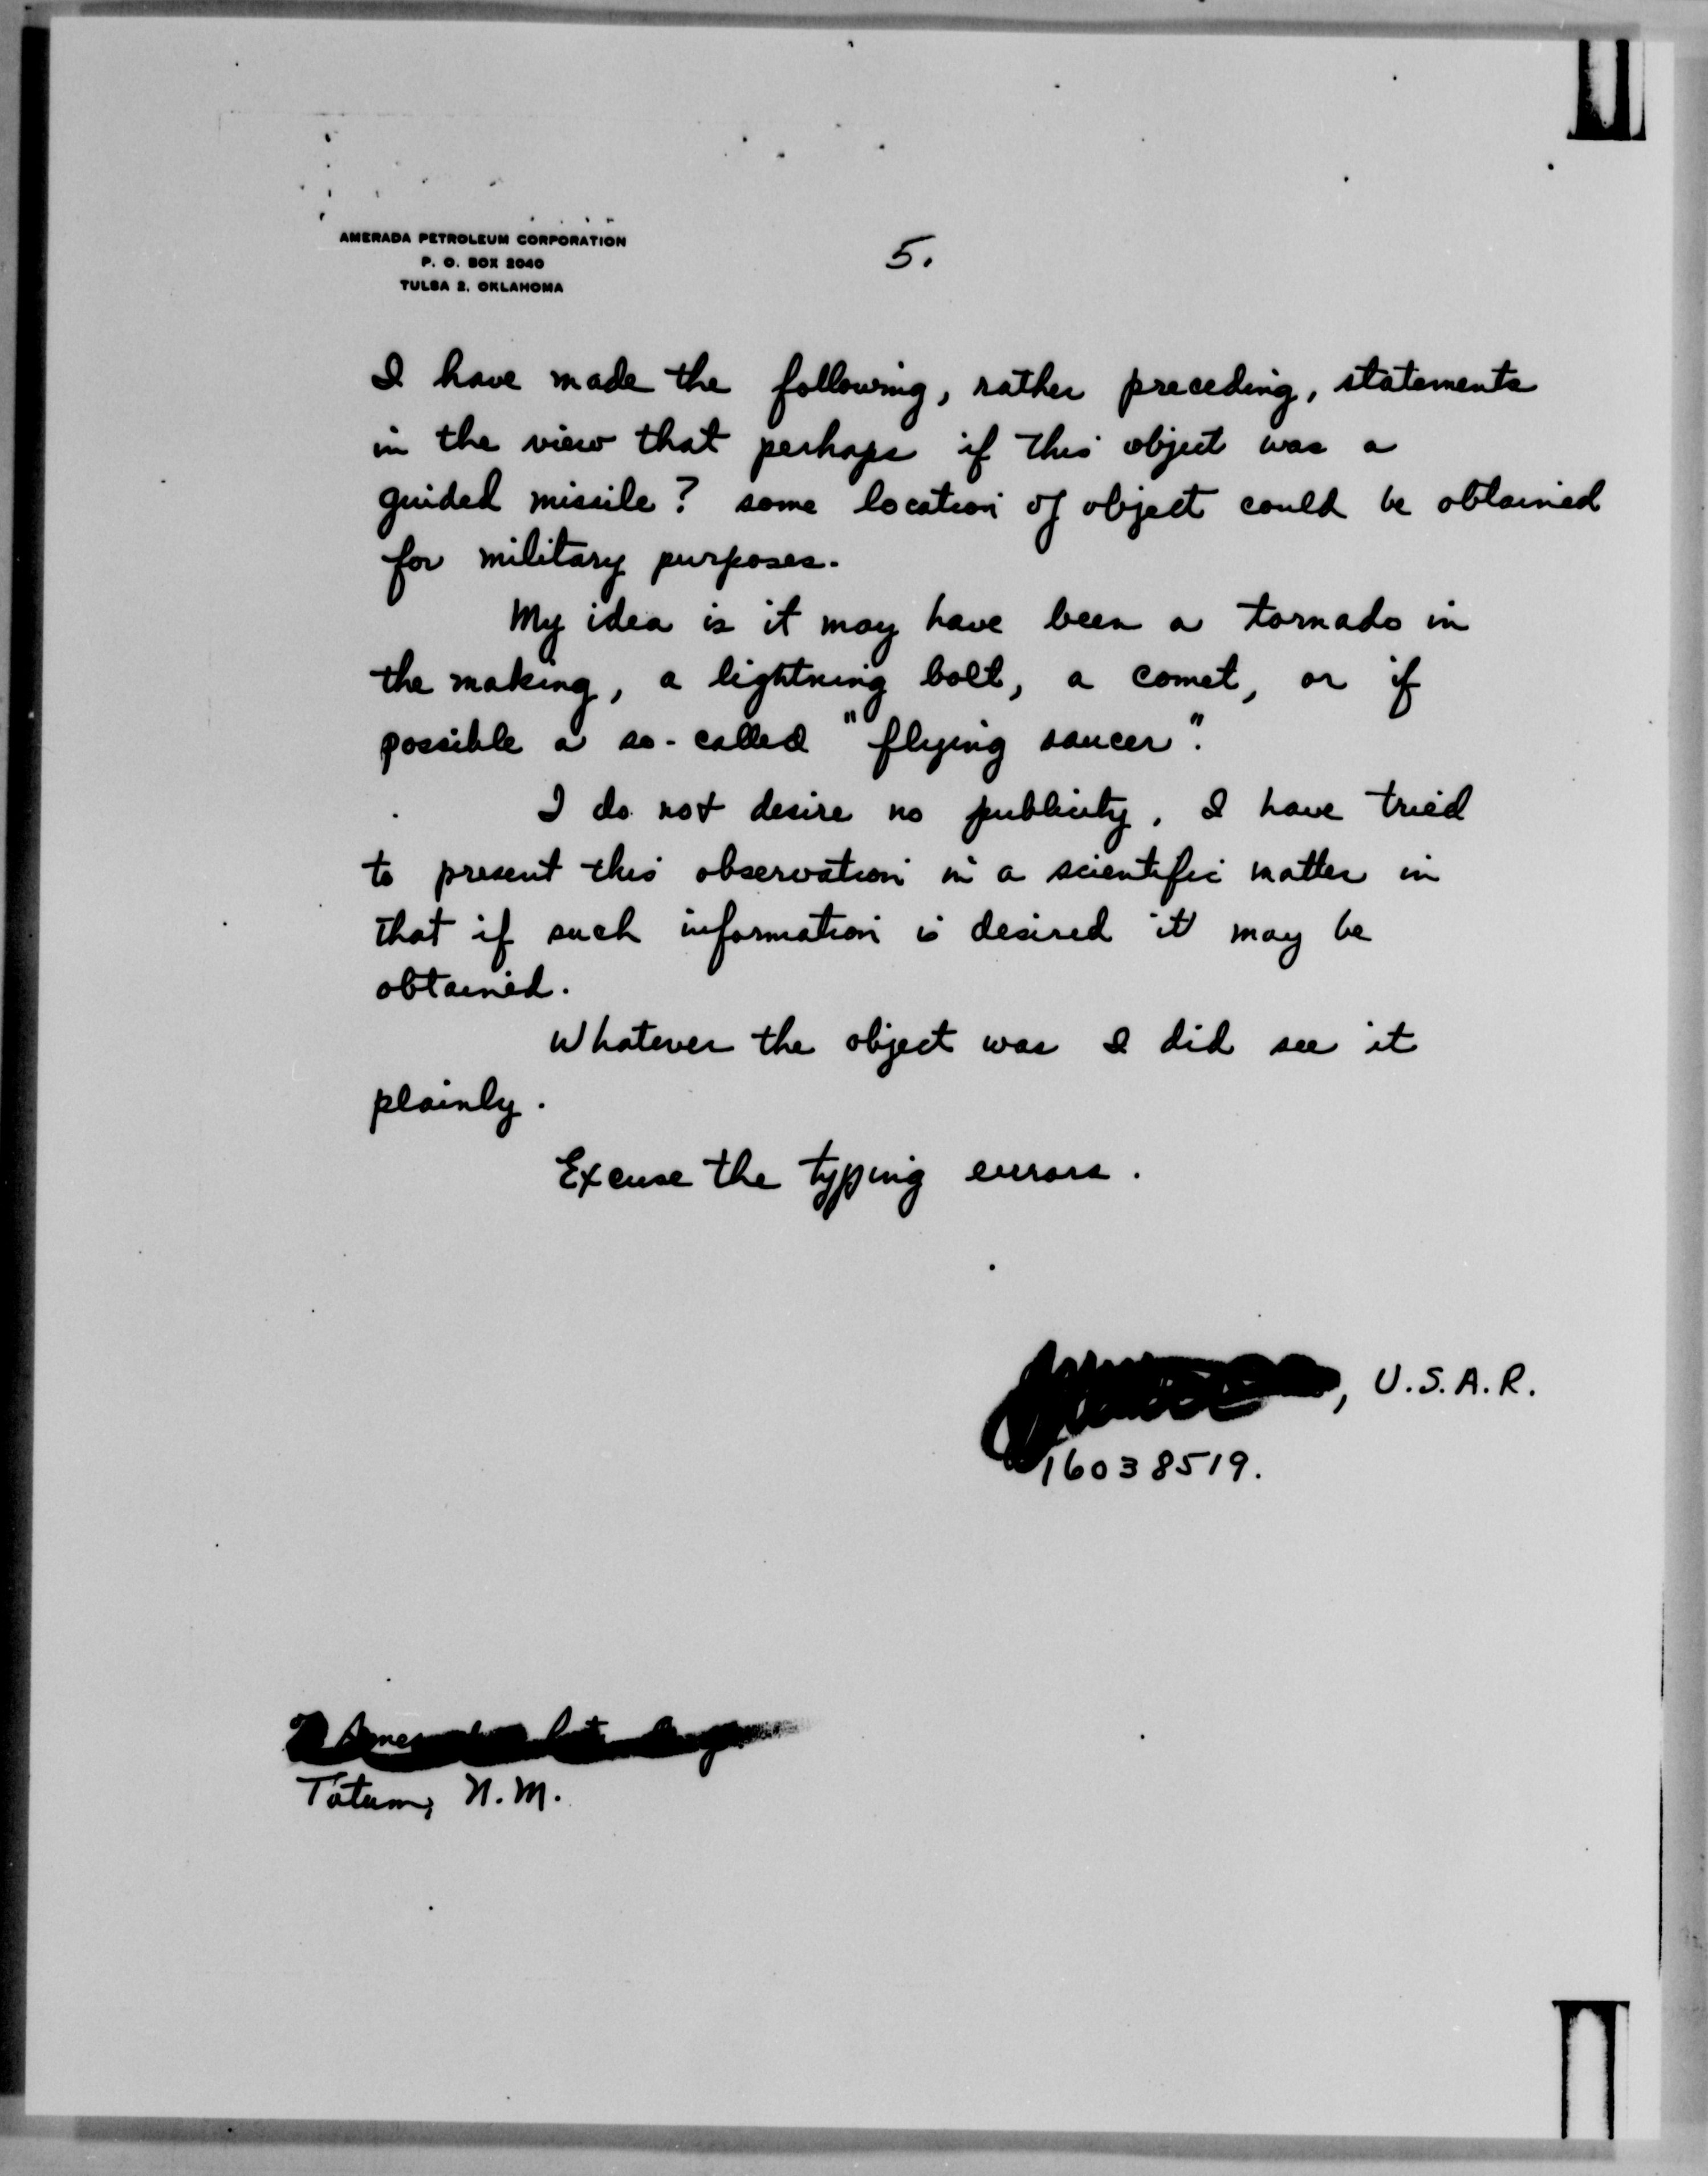 AMERADA PETROLEUM CORPORATION
P. O. BOX 2040
TULSA 2, OKLAHOMA
5.
I have made the following, rather preceding, statements
in the view that perhaps if this object was a
guided missile? some location of object could be obtained
for military purposes.
My idea is it may have been a tornado in
the making, a lightning bolt, a comet, or if
possible a so-called "flying saucer".
I do not desire no publicity. I have tried
to present this observation in a scientific matter in
that if such information is desired it may be
obtained.
Whatever the object was I did see it
plainly.
Excuse the typing errors.
, U.S.A.R.
16038519.
Tatum, N.M.